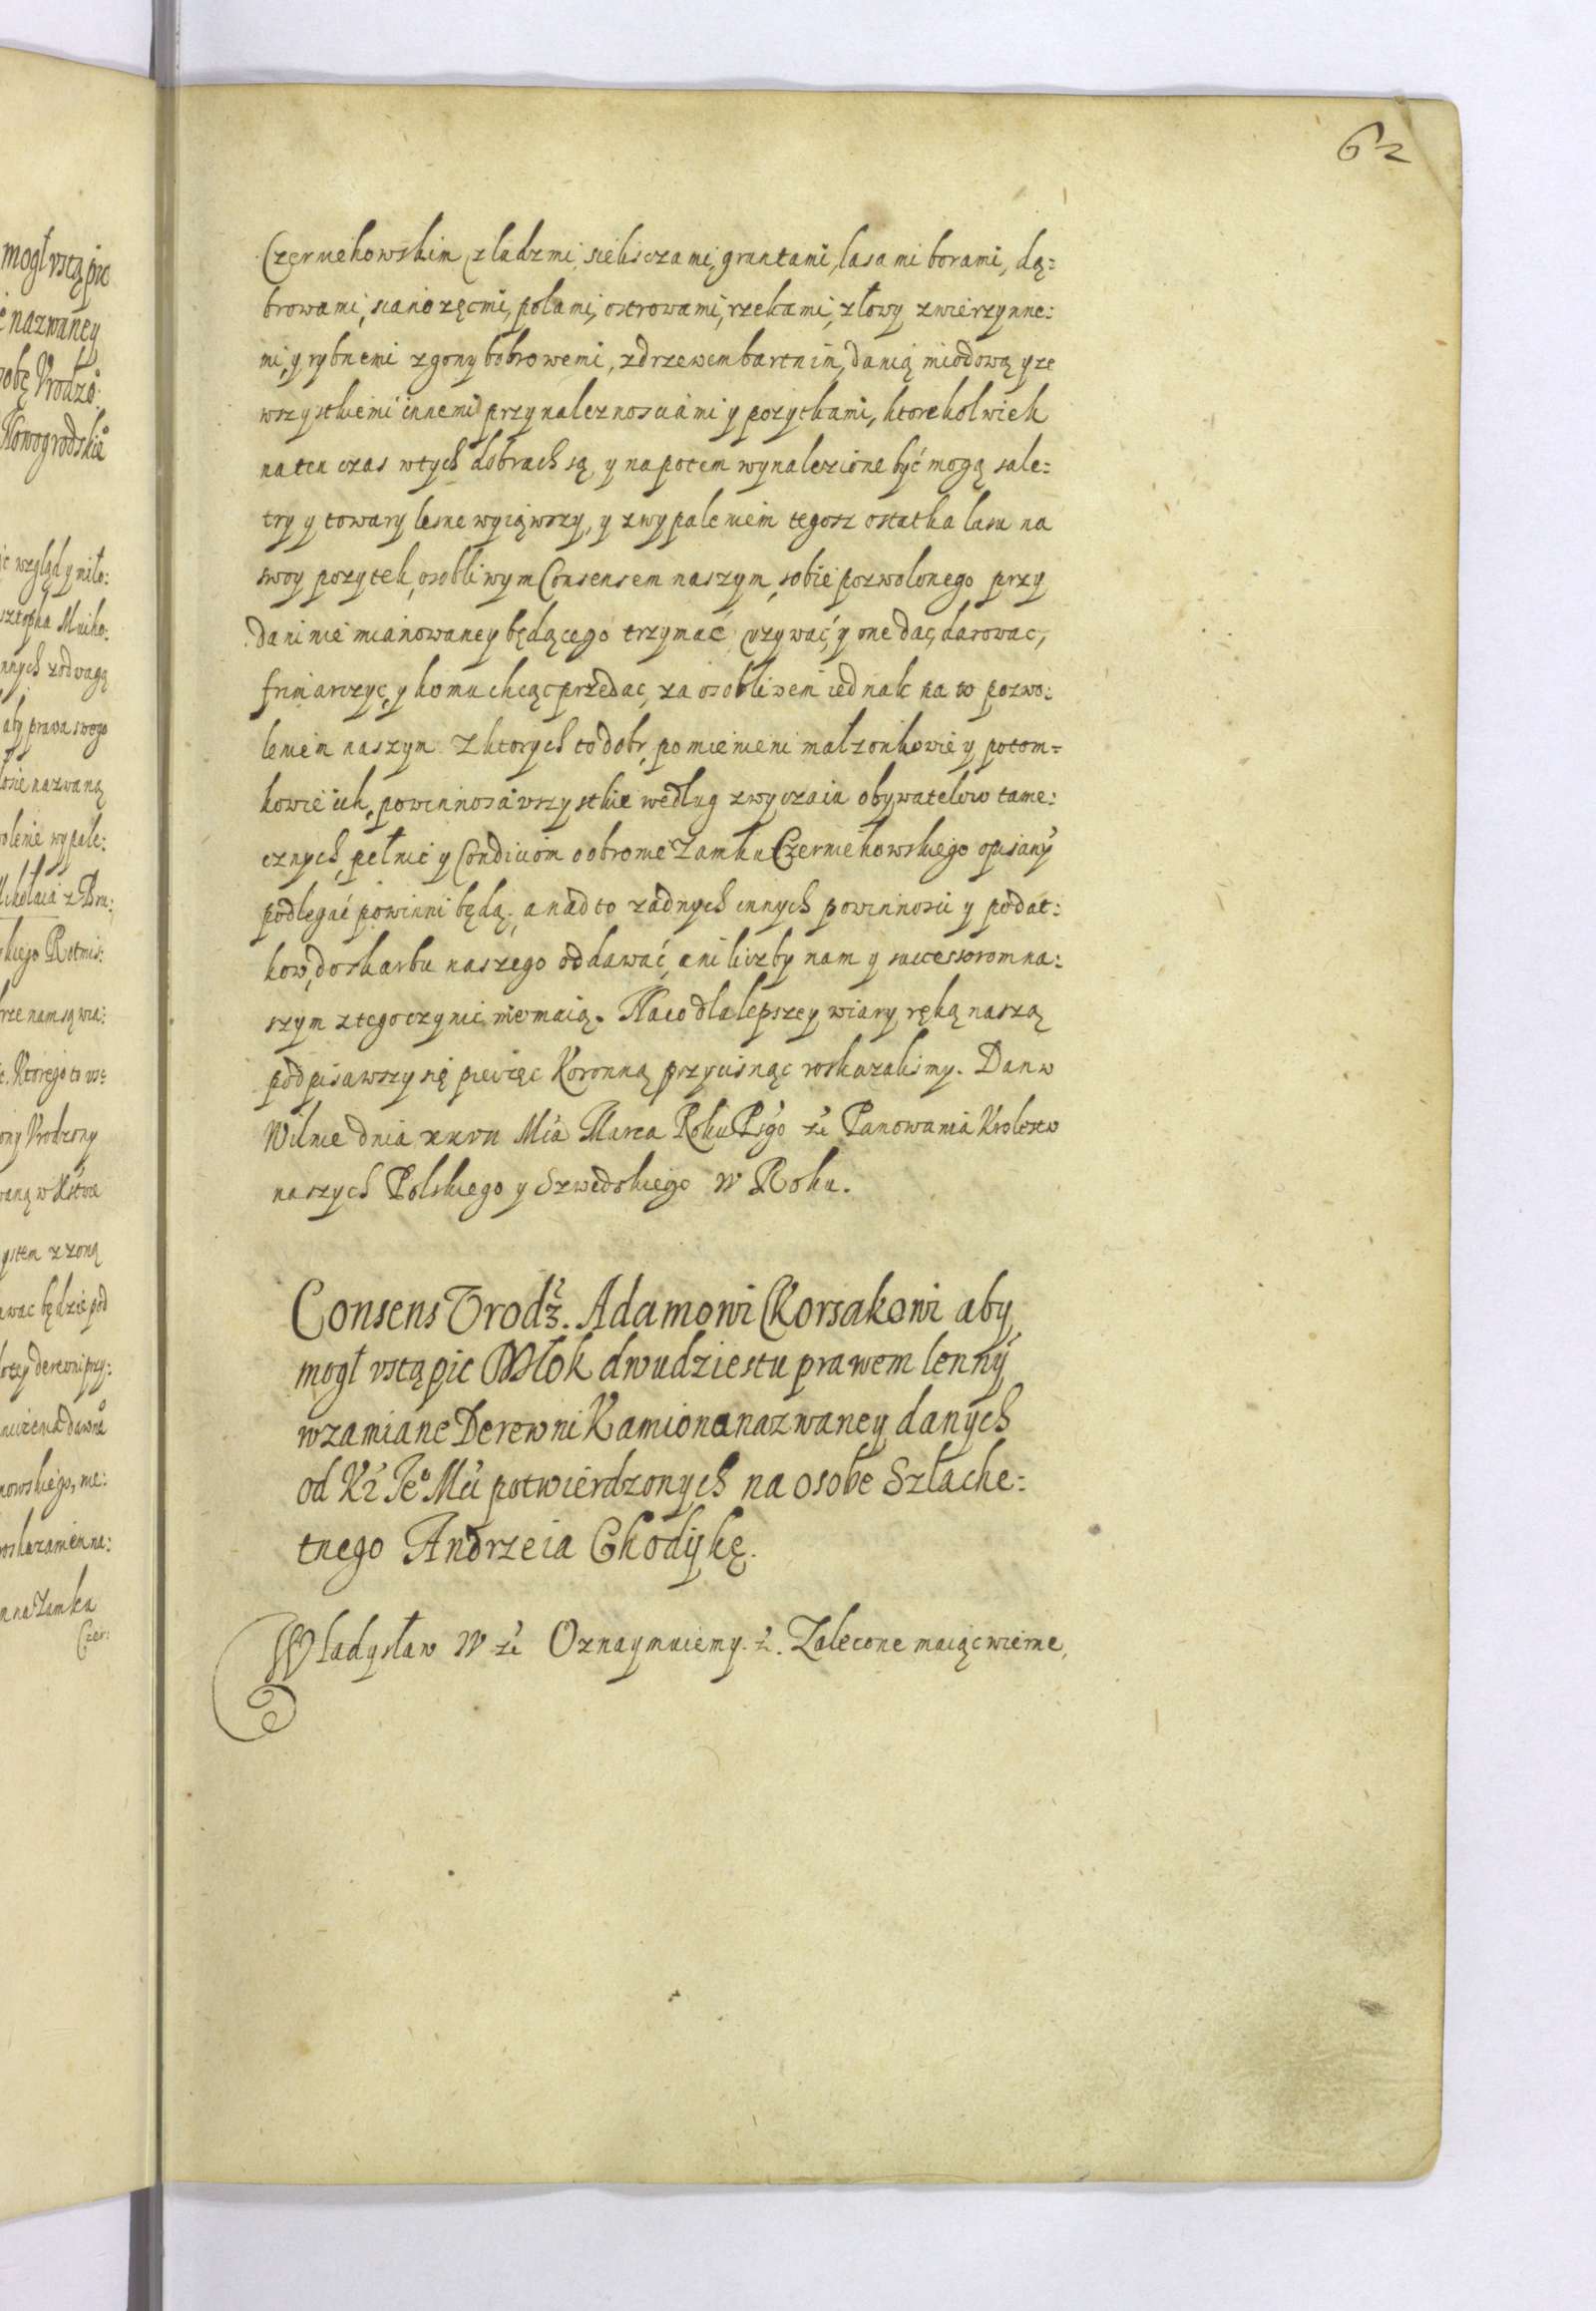 62
Czerniehowskim z ludzmi, sieliszczami, gruntami, lasami borami, dą:
browami, sianozęcmi, polami, ostrowami, rzekami, z łowy zwierzynne:
mi, y rybnemi z gony bobrowemi, z drzewem bartnim, danią miodową y ze
wszystkiemi innemi przynaleznosciami y pozytkami, ktorekolwiek
na ten czas w tych dobrach są, y na potem wynalezione być mogą sale:
try y towary lesne wyiąwszy, y z wypaleniem tegosz ostatka lasu na
swoy pozytek, osobliwym Consensem naszym, sobie pozwolonego przy
daninie mianowaney będącego trzymać, uzywać, y one dac, darowac,
frimarczyc, y komu chcąc przedac, za osobliwem iednak na to pozwo:
leniem naszym. Z ktorych to dobr, pomienieni małzonkowie y potom=
kowie ich, powinnosci wszystkie według zwyczaiu obywatelow tame:
cznych, pełnic y Condiciom o obronie Zamku Czerniehowskiego opisany
podlegać powinni będą; a nad to zadnych innych powinnosci y podat:
kow, do skarbu naszego oddawać, ani liczby nam y successorom na:
szym z tego czynic nie maią. Na co dla lepszey wiary, ręką naszą
podpisawszy się pieczęc Koronną przycisnąc roskazalismy. Dan w
Wilnie dnia xxvii Mca Marca Roku Pgo &c Panowania Krolestw
naszych Polskiego y Szwedskiego IV Roku.
Consens Vrodz. Adamowi Korsakowi aby
mogł vstąpic Włok dwudziestu prawem lenny
w zamiane Derewni Kamiona nazwaney danych
od K: Jeo Mci potwierdzonych na osobe Szlache:
tnego Andrzeia Chodykę.
Władysław IV &c Oznaymuiemy. &c. Zalecone maiąc wierne,
mogł vstąpic
nazwaney
obę Vrodzo:
Nowogrodskie
wzgląd y miło:
nnych z odwagą
aby prawa swego
nazwaną
wypale:
kiego Rotmis:
rze nam są wia:
Ktorego to
Vrodzony
z zoną
będzie pod
derewni przy:
nowskiego,
na Zamku
Czer: